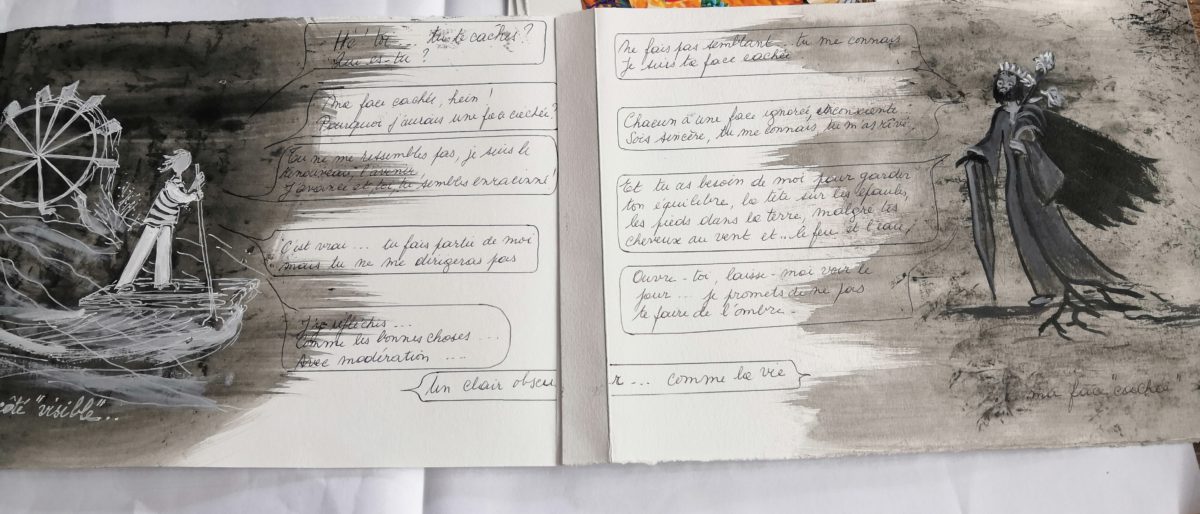 Hé ! toi ... tu te caches ?
Qui es-tu ?
Ma face cachée, hein !
Pourquoi j'aurais une face cachée ?
Tu ne me ressembles pas, je suis le
renouveau, l'avenir
J'avance et toi, tu sembles enraciné !
C'est vrai ... tu fais partie de moi
mais tu ne me dirigeras pas
réfléchis ...
Comme les bonnes choses ...
Avec modération ....
Un clair obscur ... comme la vie
côté "visible"..
Ne fais pas semblant ... tu me connais
Je suis ta face cachée
Chacun à une face ignorée, inconsciente
Sois sincère, tu me connais, tu m'as rêvé,
Et tu as besoin de moi pour garder
ton équilibre, la tête sur les épaules,
les pieds dans la terre, malgré tes
cheveux au vent et .. le feu et l'eau,
Ouvre-toi, laisse-moi voir le
jour ... je promets de ne pas
te faire de l'ombre.
ma face cachée"